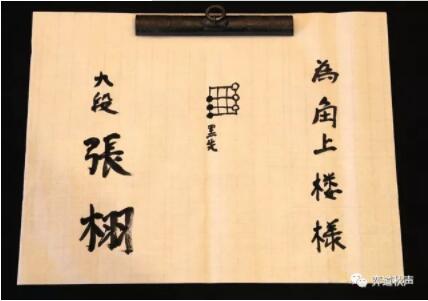 為角上楼様
黒先
九段
張栩
弈道秋声